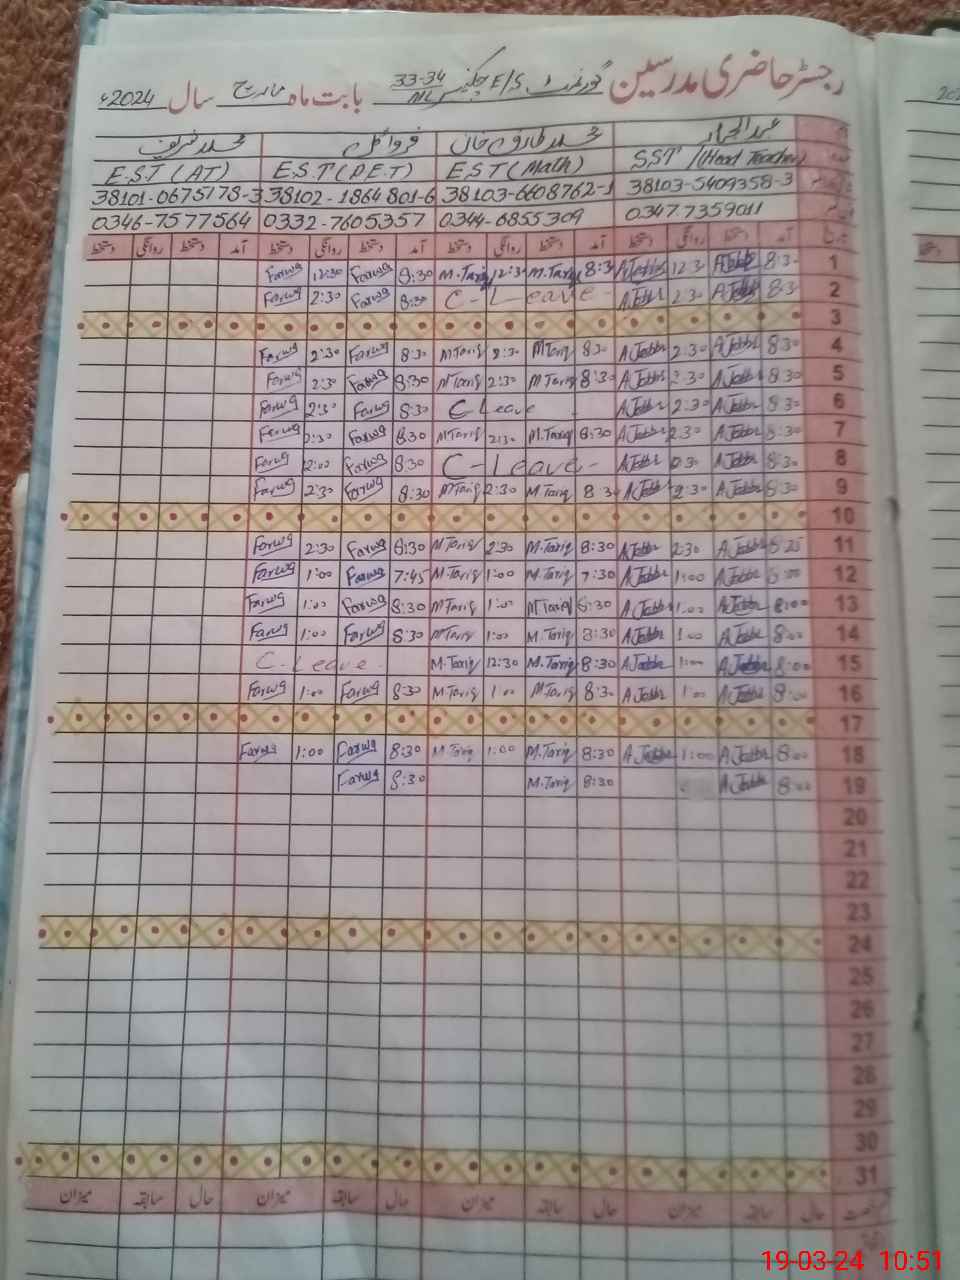 رجسٹر حاضری مدرسین گورنمنٹ E/S چک نمبر 33-34 ML بابت ماہ مارچ سال 2024ء
عبدالجبار محمد طارق خان فروا گل محمد شریف
SST/(Head Teacher) E.S.T (Math) E.S.T (P.E.T) E.S.T (AT)
38103-5409358-3 38103-6608762-1 38102-1864801-6 38101-0675178-3
0347-7359011 0344-6855309 0332-7605357 0346-7577564
تاریخ آمد دستخط روانگی دستخط آمد دستخط روانگی دستخط آمد دستخط روانگی دستخط آمد دستخط روانگی دستخط
1 8:30 A Jabbr 12:30 A Jabbr 8:30 M.Tariq 12:30 M.Tariq 8:30 Farwa 12:30 Farwa
2 8:30 A Jabbr 2:30 A Jabbr C-Leave 8:30 Farwa 2:30 Farwa
3
4 8:30 A Jabbr 2:30 A Jabbr 8:30 M Tariq 2:30 M Tariq 8:30 Farwa 2:30 Farwa
5 8:30 A Jabbr 2:30 A Jabbr 8:30 M Tariq 2:30 M Tariq 8:30 Farwa 2:30 Farwa
6 8:30 A Jabbr 2:30 A Jabbr C Leave 8:30 Farwa 2:30 Farwa
7 8:30 A Jabbr 2:30 A Jabbr 8:30 M.Tariq 2:30 M Tariq 8:30 Farwa 2:30 Farwa
8 8:30 A Jabbr A Jabbr C-Leave- 8:30 Farwa Farwa
9 8:30 A Jabbr 2:30 A Jabbr 8:30 M.Tariq 2:30 M Tariq 8:30 Farwa 2:30 Farwa
10
11 8:25 A Jabbr 2:30 A Jabbr 8:30 M.Tariq 2:30 M Tariq 8:30 Farwa 2:30 Farwa
12 8:00 A Jabbr 1:00 A Jabbr 7:30 M.Tariq 1:00 M.Tariq 7:45 Farwa 1:00 Farwa
13 8:00 A Jabbr 1:00 A Jabbr 8:30 M Tariq 1:00 M Tariq 8:30 Farwa 1:00 Farwa
14 8:00 A Jabbr 1:00 A Jabbr 8:30 M.Tariq 1:00 M Tariq 8:30 Farwa 1:00 Farwa
15 8:00 A Jabbr 1:00 A Jabbr 8:30 M.Tariq 12:30 M.Tariq C-Leave
16 8:00 A Jabbr 1:00 A Jabbr 8:30 M Tariq 1:00 M Tariq 8:30 Farwa 1:00 Farwa
17
18 8:00 A Jabbr 1:00 A Jabbr 8:30 M.Tariq 1:00 M Tariq 8:30 Farwa 1:00 Farwa
19 8:00 A Jabbr 8:30 M.Tariq 8:30 Farwa
20
21
22
23
24
25
26
27
28
29
30
31
حال سابقہ میزان حال سابقہ میزان حال سابقہ میزان حال سابقہ میزان
19-03-24 10:51